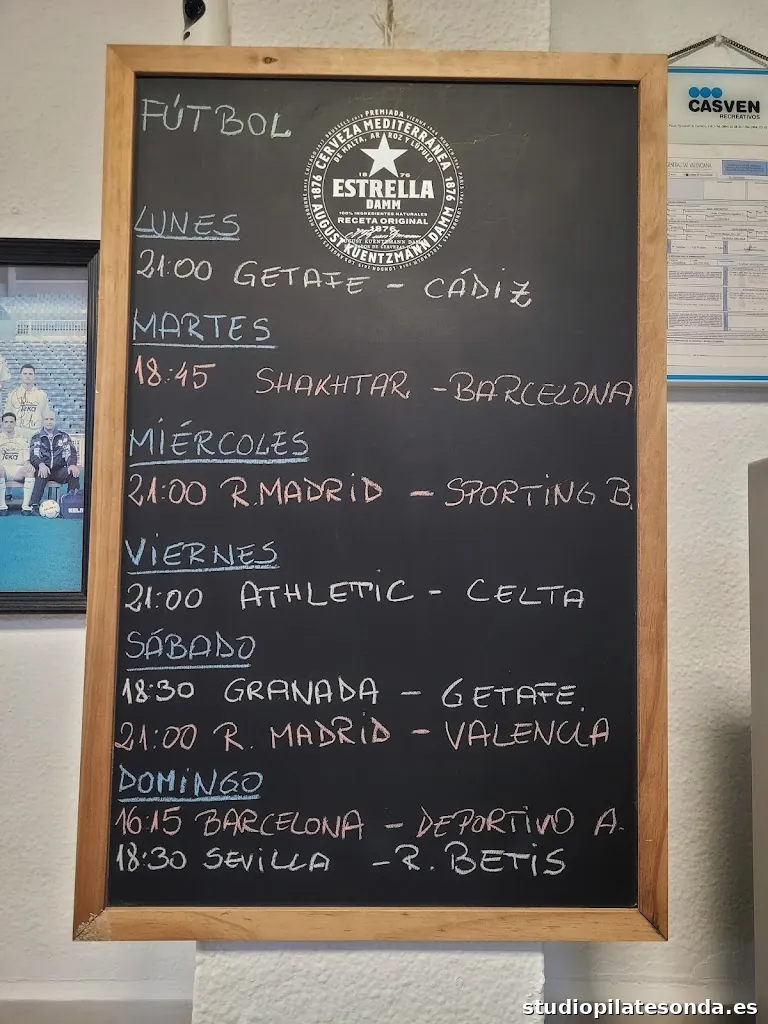 FÚTBOL
PREMIADA
CERVEZA MEDITERRÁNEA
DE MALTA, ARROZ Y LÚPULO
1876
ESTRELLA
DAMM
100% INGREDIENTES NATURALES
RECETA ORIGINAL
1876
AUGUST KUENTZMANN DAMM
1876
1876
CASVEN
RECREATIVOS
LUNES
21:00 GETAFE - CÁDIZ
MARTES
18:45 SHAKHTAR - BARCELONA
MIÉRCOLES
21:00 R.MADRID - SPORTING B.
VIERNES
21:00 ATHLETIC - CELTA
SÁBADO
18:30 GRANADA - GETAFE.
21:00 R. MADRID - VALENCIA
DOMINGO
16:15 BARCELONA - DEPORTIVO A.
18:30 SEVILLA - R. BETIS
studiopilatesonda.es